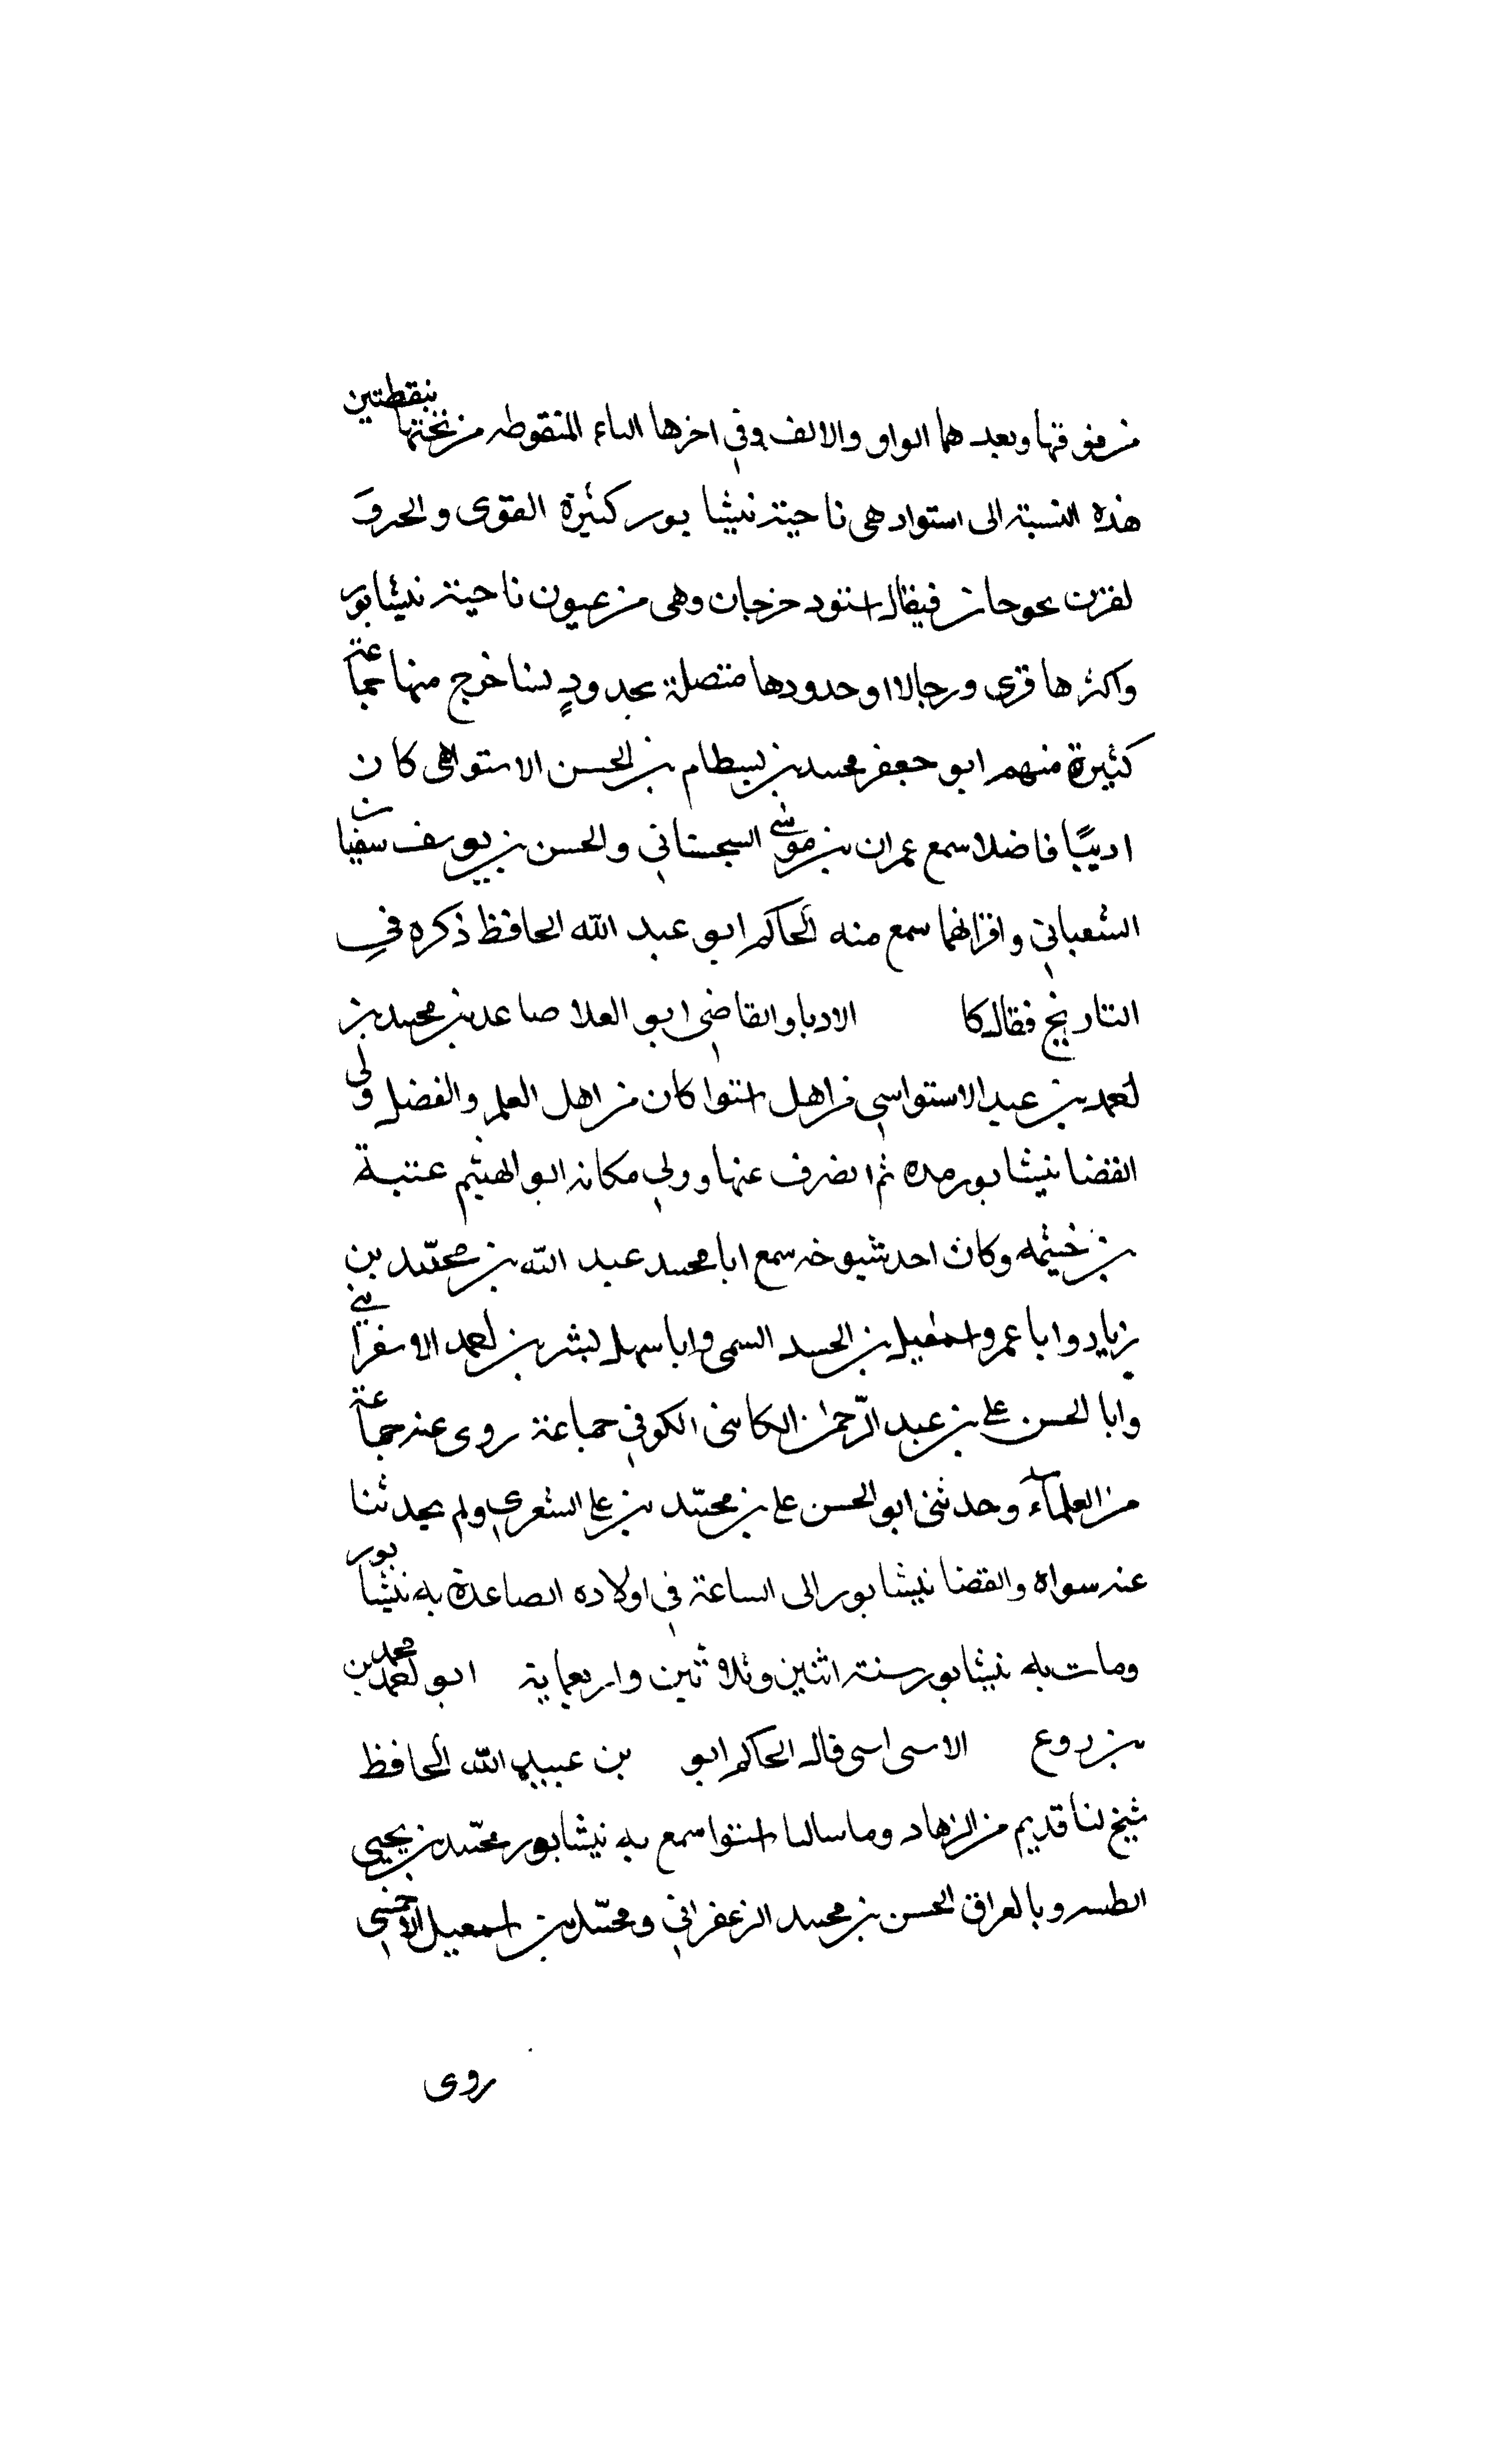 من فوقها وبعدهما الواو والالف وفي اخرها الياء المنقوطه من تحتها بنقطتين
هذه النسبة الى استواد هى ناحية نيشابور كثيرة القوى والحروَ
لقرن بحوجان فيقال استود خرجان وهى من عيون ناحية نيشابور
واكثرها قرى ورجالا وحدودها متصلة بحدودٍ نسا خرج منها جماعة
كثيرة منهم ابو جعفر محمد بن بسطام بن الحسن الاستوائى كان
اديبًا فاضلا سمع عمران بن موسى السجستاني والحسن بن يوسف سفيان
الشعباني واقرانهما سمع منه الحاكم ابو عبد الله الحافظ ذكره في
التاريخ فقال كا الادبا والقاضي ابو العلا صاعد بن محمد بن
احمد بن عبد الاستواسي من اهل استوا كان من اهل العلم والفضل ولى
القضا نيشابور مده ثم انصرف عنها وولي مكانه ابو الهيثم عتبة
بن خيثمه وكان احد شيوخه سمع ابا محمد عبد الله بن محمّد بن
زياد وابا عمرو اسمعيل بن السمى وابا سهل بشر بن احمد الاسفراينى
وابا الحسن على بن عبد الرّحمن الكوفي جماعة روى عنه جماعة
من العلماء وحدثنى ابو الحسن على بن محمّد بن على الشعري ولم يحدثنا
عنه سواه والقضا نيشابور الى الساعة في اولاده الصاعدة به نيشابور
ومات به نيشابور سنة اثنين وثلاثين واربعماية ابو احمد محمد بن
بن دوع الاسى اسى قال الحاكم ابو بن عبيد الله الحافظ
شيخ لنا قديم من الزهاد وما سالنا استوا سمع به نيشابور محمّد بن يحيى
الطسر وبالعراق الحسن بن محمد الزعفراني ومحمّد بن اسمعيل الاحمسي
روى